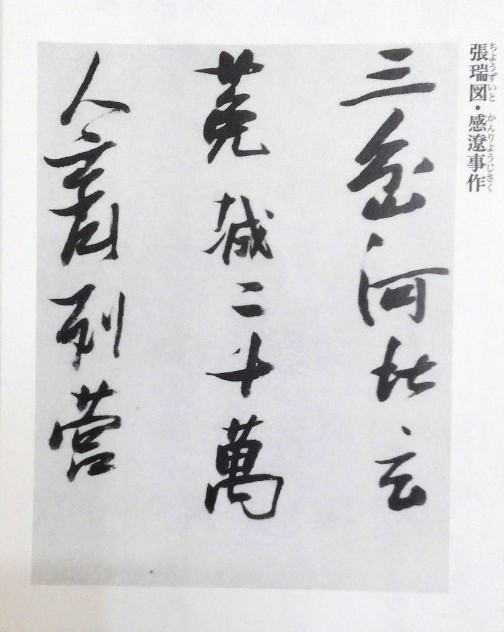 張瑞図・感遼事作
ちようずいと かんりようじさく
三岔河北玄
菟城二十萬
人齊列營